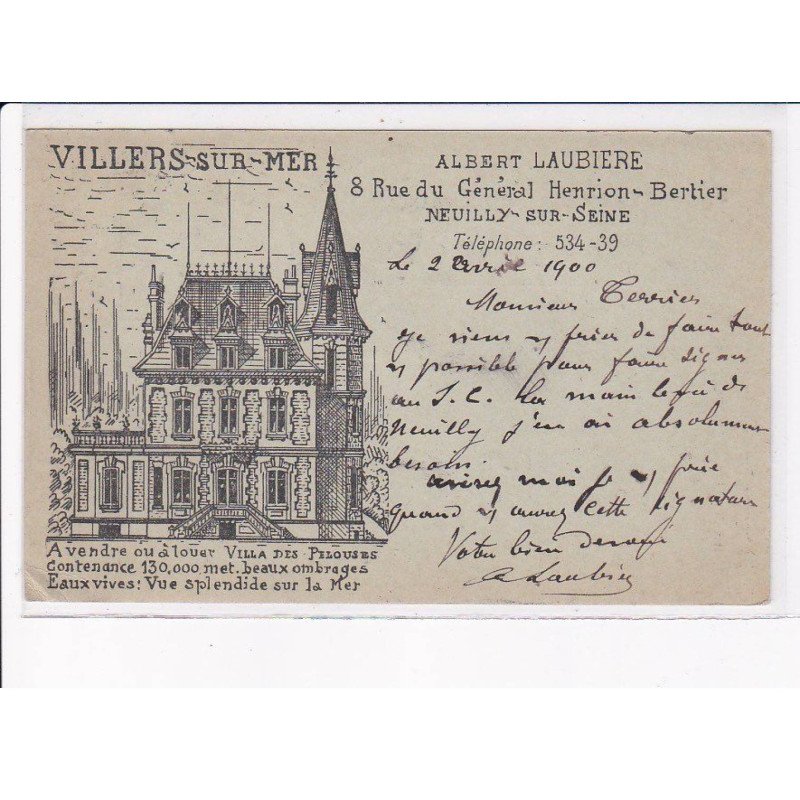 VILLERS-SUR-MER
ALBERT LAUBIERE
8 Rue du Général Henrion-Bertier
NEUILLY-SUR-SEINE
Téléphone: 534-39
Le 2 avril 1900
Monsieur Terrier
Je viens v prier de faire tout
v possible pour faire signer
au S. C. la main levée de
Neuilly j'en ai absolument
besoin.
avisez moi je v prie
quand v aurez cette signature
Votre bien dévoué
A Laubière
A vendre ou à louer VILLA DES PELOUSES
Contenance 130,000 met. beaux ombrages
Eaux vives: Vue splendide sur la Mer